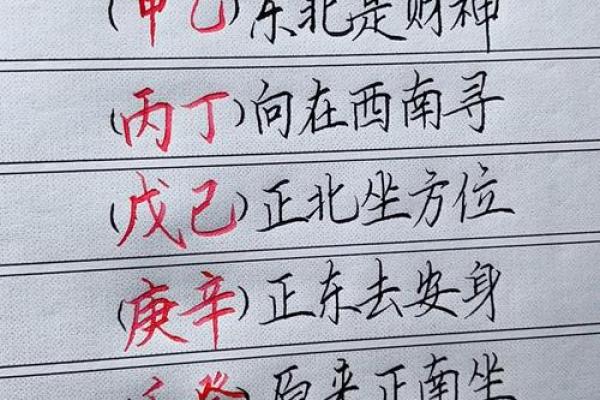 (甲乙)东北是财神
(丙丁)向在西南寻
(戊己)正北坐方位
(庚辛)正东去安身
癸)原来正南坐